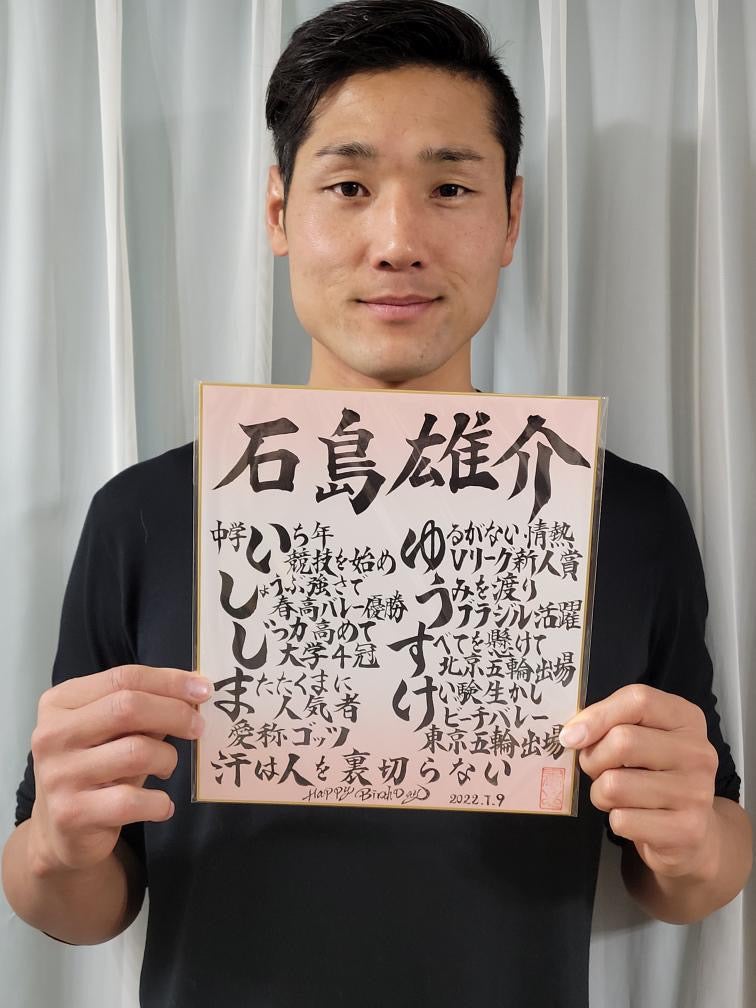 石島雄介
中学いち年
競技を始め
しょうぶ強さで
春高バレー優勝
じつ力高めて
大学4冠
またたくまに
人気者
愛称ゴッツ
ゆるがない情熱
Vリーグ新人賞
うみを渡り
ブラジル活躍
すべてを懸けて
北京五輪出場
けい験生かし
ビーチバレー
東京五輪出場
汗は人を裏切らない
Happy BirthDay 2022.7.9